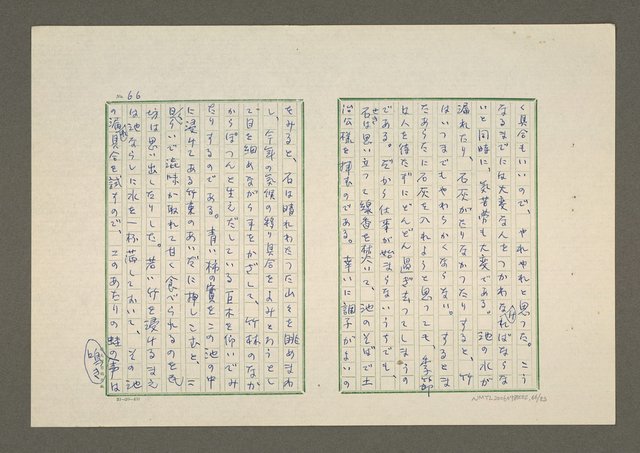 く具合もいいので、やれやれと思つた。こう
なるまでには大変な人をつかわなければならな
いと同時に、気苦労も大変である。池の水が
漏れたり、石灰がたりなかつたりすると、竹
はいつまでもやわらかくならない。するとま
たあらたに石灰を入れようと思つても、季節
は人を待たずにどんどん過ぎ去つてしまうの
である。だから仕事が始まらないうちでも、
石は思い立つて線香を焚いて、池のそばで土
治公様を拝むのである。幸いに調子がよいの
No. 66
をみると、石は晴れわたつた山々を眺めまわ
し、今年の気候の移り具合をよみとろうとし
て目を細めながら手をかざして、竹林のなか
からぽつんと生えだしている巨木を仰いでみ
たりするのである。青い柿の實をこの池の中
に浸けてある竹束のあいだに押しこむと、二
日ぐらいで澁味が取れて甘く食べられるのを
坊は思い出したりした。若い竹を浸けるまえ
は池ならしに水を一杯満しておいて、その池
の漏具合を試すので、このあたりの蛙の声は
鳴き